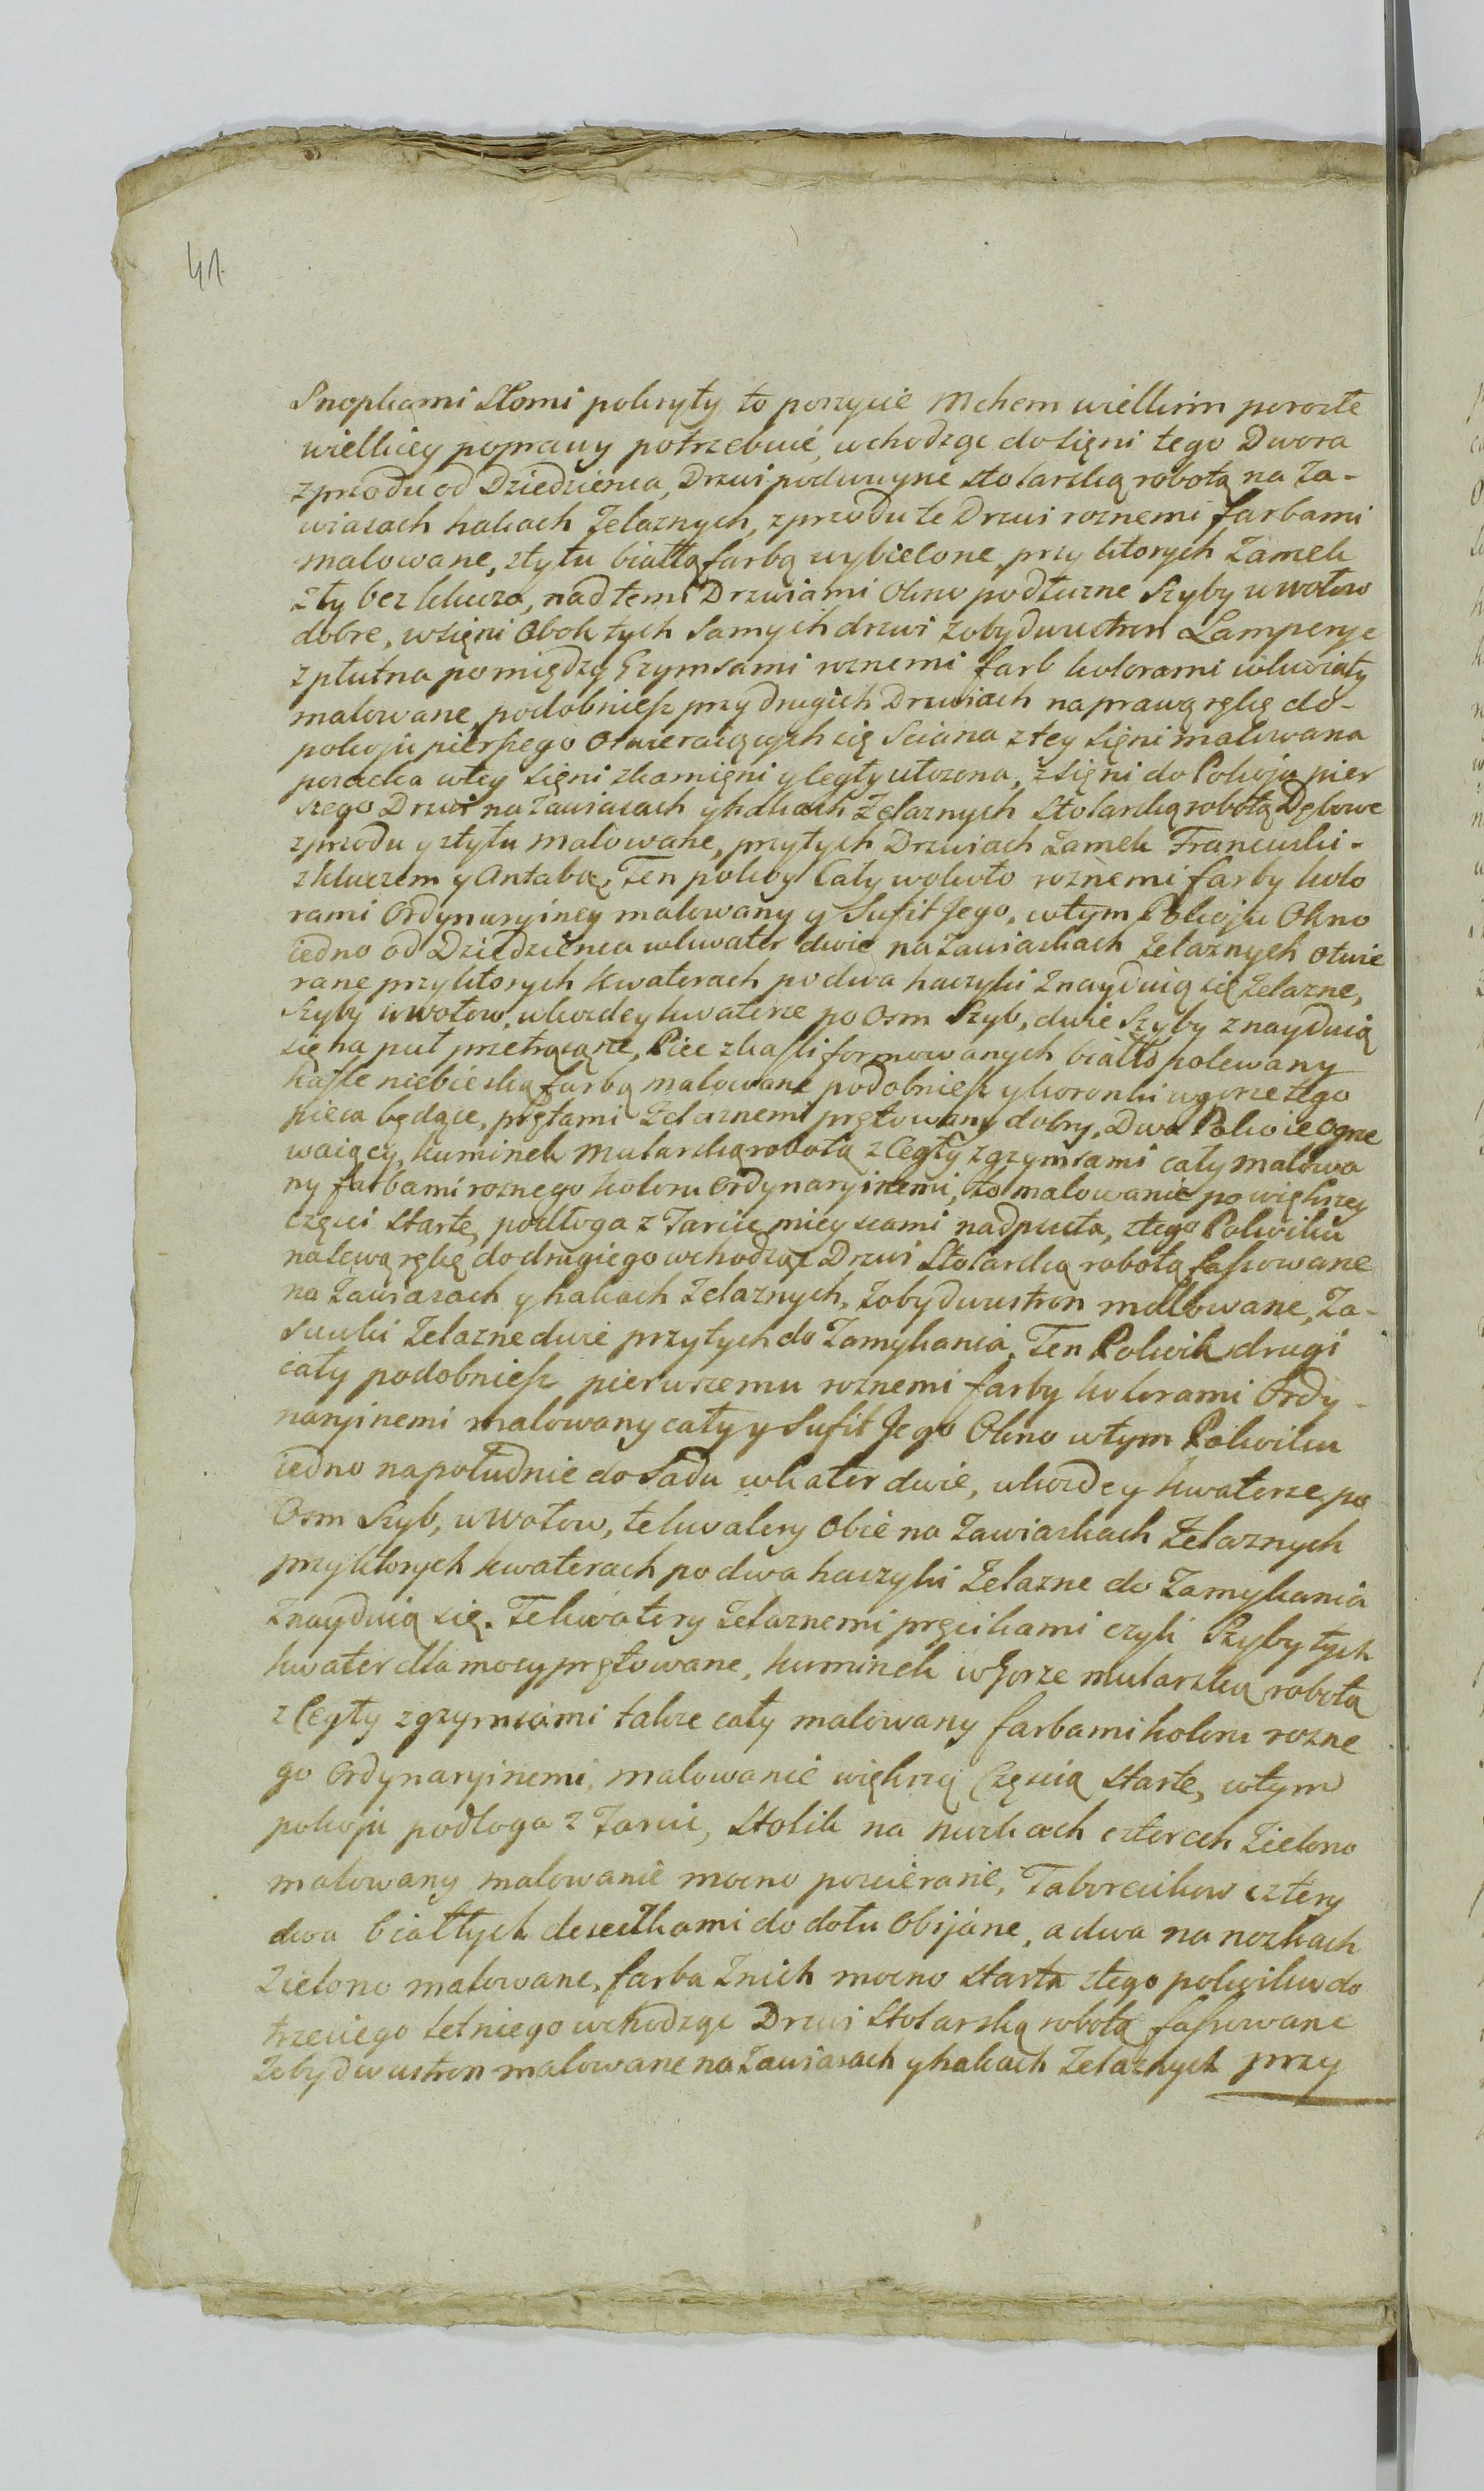 41
Snopkami Słomi pokryty to poszycie Mchem wielkim porozłe
wielkiey poprawy potrzebuié, wchodząc do sięni tego Dwora
z przodu od Dziedzienca, Drzwi podwuyne stolarską robotą na Za-
wiasach hakach Zelaznych, z przodu te Drzwi roznemi farbami
malowane, z tytu białłą farbą wybielone, przy ktorych Zamek
zły bez klucza, nad temi Drzwiami Okno podłuzne Szyby w wołow
dobre, w sięni Obok tych samych drzwi z obydwustron Lamperye
z płutna pomiędzę Gzymsami roznemi farb kolorami w kwiaty
malowane, podobniesz przy drugich Drzwiach na prawą rękę do-
pokoju pierszego Otwieraiących się Sciana z tey Sięni malowana
posacka w tey sięni z kamięni y Cegły ułozona, z sięni do Pokoju pier
szego Drzwi na Zawiasach y hakach Zelaznych Stolarską robotą Dębowe
z przodu y z tytu malowane, przytych Drzwiach Zamek Francuski.
z kluczem y Antabą, Ten pokoy Cały wokoło roznemi farby kolo
rami Ordynaryiney malowany y Sufit Jego, w tym Pokoju Okno
iedno od Dziedzienca w kwater dwie na Zawiaskach Zelaznych otwie
rane przy ktorych kwaterach po dwa haczyki Znayduią się Zelazne,
Szyby w wołow, w kozdey kwaterze po Osm Szyb, dwie Szyby znayduią
się na puł przetrącane, Piec z kasli formowanych biało polewany
kasle niebieską farbą malowane podobniesz y koronki w gorze tego
pieca będące, prętami Zelaznemi prętowany dobry, Dwa Pokoie Ogrze
waiący, kuminek mularską robotą z Cegły z gzymsami cały malowa
ny farbami roznego koloru Ordynaryinemi, to malowanie po większey
częsci starte, podłoga z Tarcic mieyscami nadpsuta, z tego Pokoiku
na lewą rękę do drugiego wchodząc Drzwi Stolarską robotą fasowane
na Zawiasach y hakach Zelaznych, Zobydwustron malowane, Za-
suwki Zelazne dwie przytych do Zamykania, Ten Pokoik drugi
cały podobniesz pierwszemu roznemi farby kolorami Ordy-
naryinemi malowany cały y Sufit Jego Okno w tym Pokoiku
iedno na południe do Sadu w kater dwie, w kozdey kwaterze po
Osm Szyb, w wołow, te kwatery Obie na Zawiaskach Zelaznych
przy ktorych kwaterach po dwa haczyki Zelazne do Zamykania
Znayduią się. Te kwatery Zelaznemi pręcikami czyli Szyby tych
kwater dla mocy prętowane, kuminek w Gorze mularską robotą
z Cegły z gzymsami takze cały malowany farbami koloru rozne
go Ordynaryinemi, malowanie większą Częscią starte, w tym
pokoju podłoga z Tarcic, Stolik na nuzkach czterech Zielono
malowany malowanie mocno poscieranie, Taborecikow cztery
dwa białłych deseczkami do dołu Obijane, a dwa na nozkach
Zielono malowane, farba Znich mocno starta z tego pokoiku do
trzeciego letniego wchodząc Drzwi Stolarską robotą fasowane
Zobydwustron malowane na Zawiasach y hakach Zelaznych przy